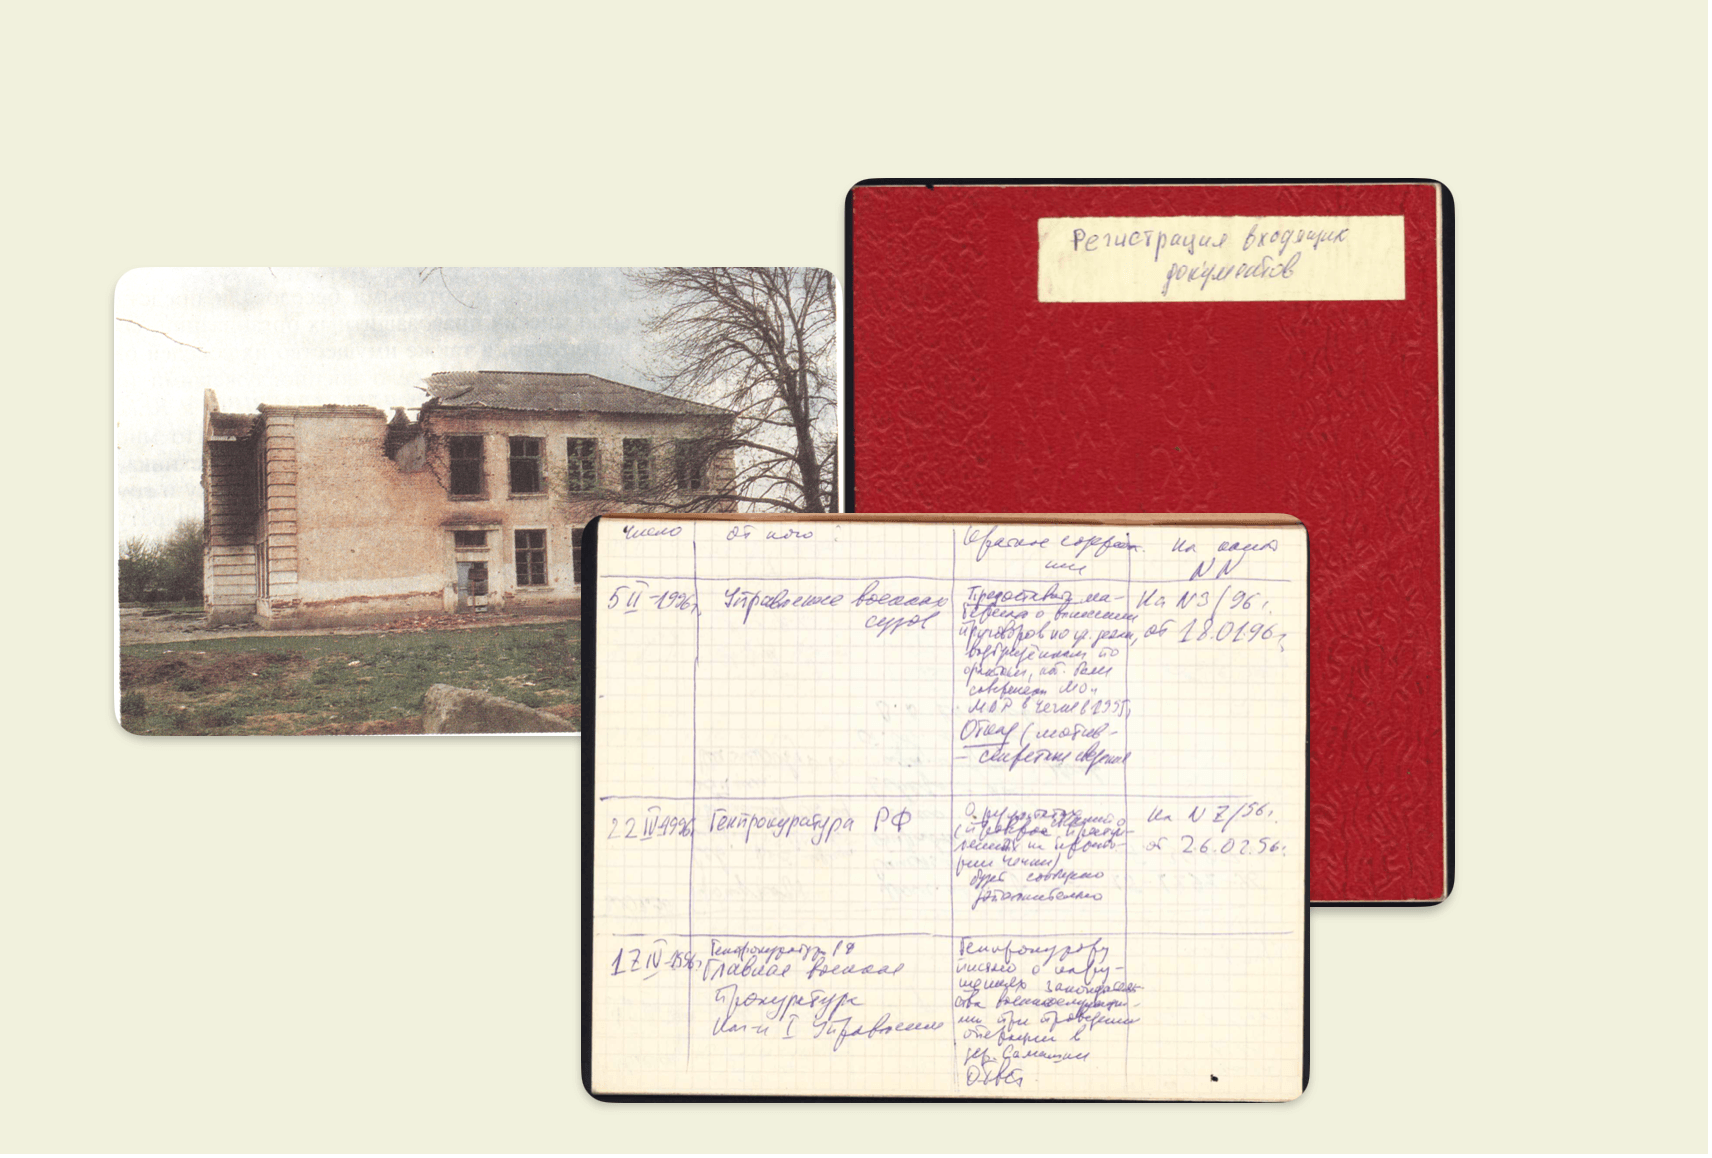 Регистрация входящих
документов
число
от кого :
Краткое содержа-
ние
На какой
NN
5 II-1996г.
Управление военных
судов
Предоставить ма-
териал о вынесении
приговоров по уг. делам,
возбуждённым по
фактам, кот. были
совершены МО и
МВД в Чечне в 1995г.
Отказ (мотив-
– секретные сведения
На N3/96г.
от 18.01.96г.
22 IV-1996г.
Генпрокуратура РФ
О результатах
будет сообщено
дополнительно
На N 7/96г.
от 26.02.96г.
17 IV-1996г.
Генпрокуратура РФ
Главная военная
прокуратура
Нач-к I Управления
Генпрокурору
письмо о нару-
шениях законодатель-
ства военнослужащи-
ми при проведении
операции в
дер. Самашки
Ответ